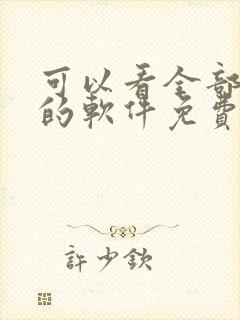 可以看全部
的軟件免費
許少欽